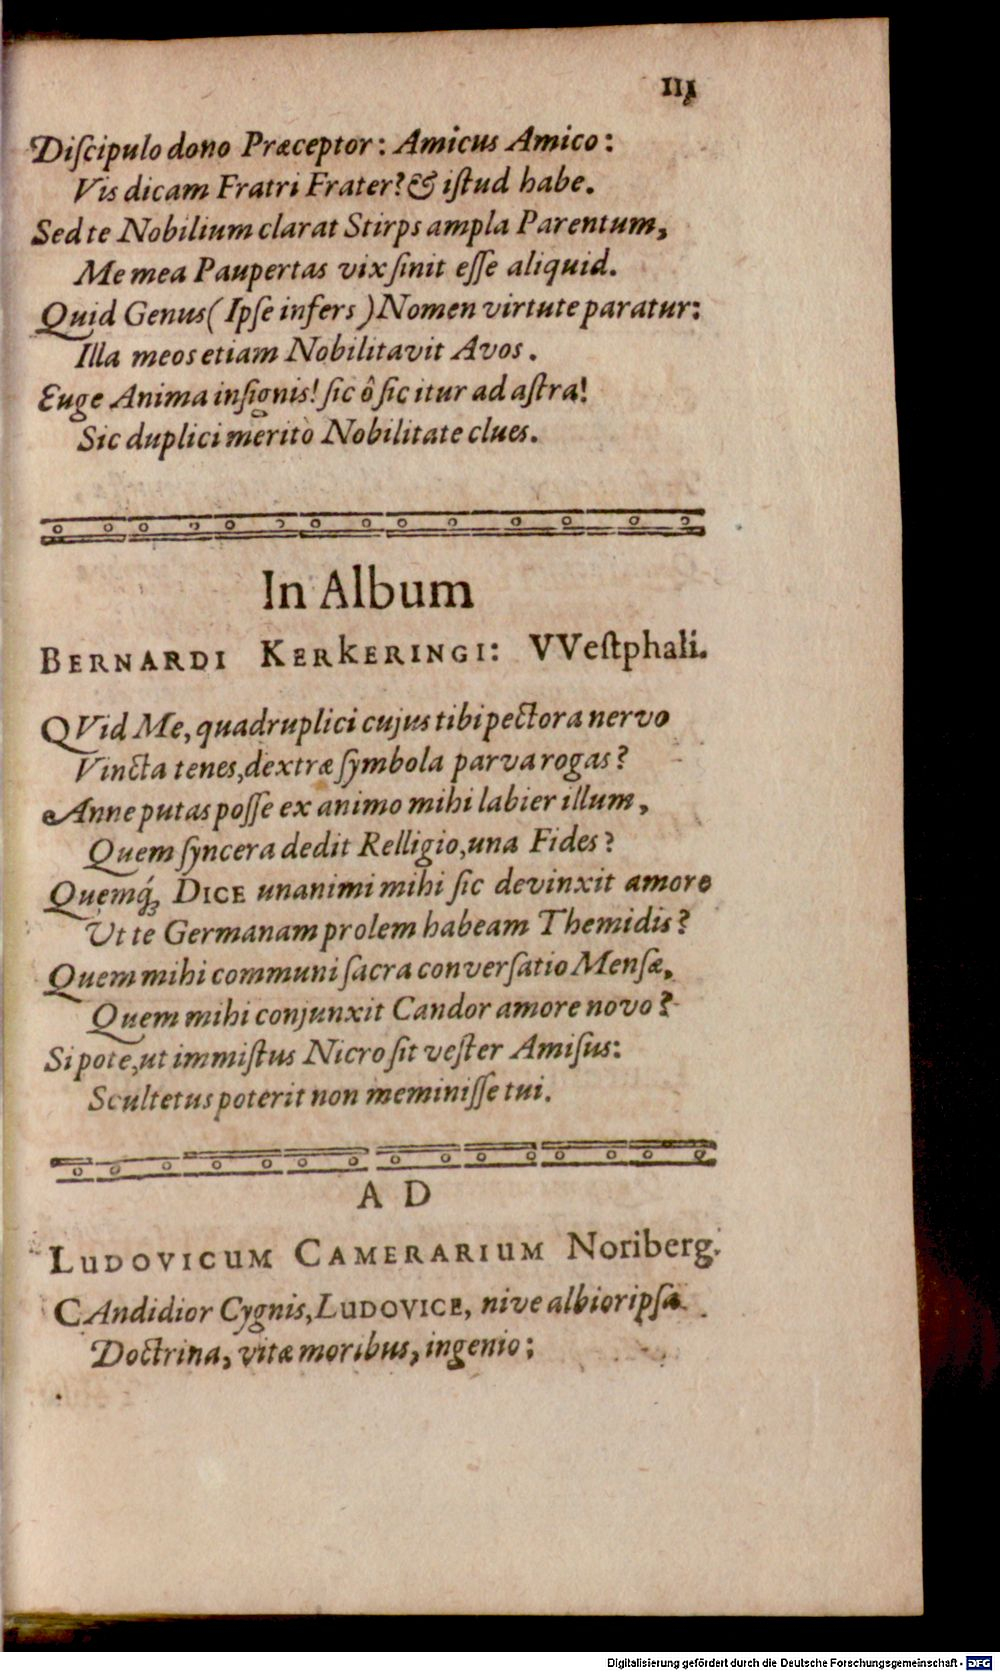 111
Diſcipulo dono Præceptor: Amicus Amico:
Vis dicam Fratri Frater? & iſtud habe.
Sed te Nobilium clarat Stirps ampla Parentum,
Me mea Paupertas vix ſinit eſſe aliquid.
Quid Genus (Ipſe infers) Nomen virtute paratur:
Illa meos etiam Nobilitavit Avos.
Euge Anima inſignis! ſic ô ſic itur ad aſtra!
Sic duplici meritò Nobilitate clues.
In Album
BERNARDI KERKERINGI: VVeſtphali.
QVid Me, quadruplici cujus tibi pectora nervo
Vincta tenes, dextræ ſymbola parva rogas?
Anne putas poſſe ex animo mihi labier illum,
Quem ſyncera dedit Relligio, una Fides?
Quemq́; DICE unanimi mihi ſic devinxit amore
Ut te Germanam prolem habeam Themidis?
Quem mihi communi ſacra converſatio Menſæ,
Quem mihi conjunxit Candor amore novo?
Si pote, ut immiſtus Nicro ſit veſter Amiſus:
Scultetus poterit non meminiſſe tui.
AD
LUDOVICUM CAMERARIUM Noriberg.
CAndidior Cygnis, LUDOVICE, nive albior ipſa
Doctrina, vitæ moribus, ingenio;
Digitalisierung gefördert durch die Deutsche Forschungsgemeinschaft - DFG